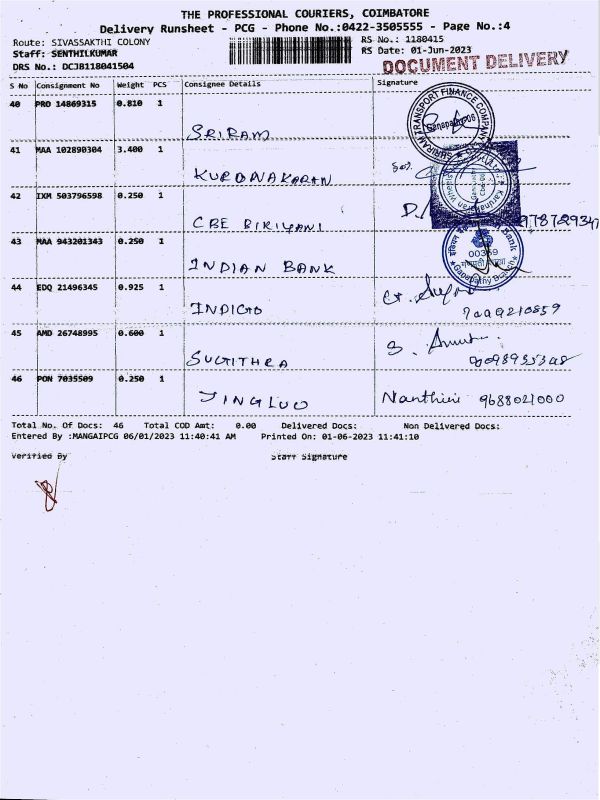 THE PROFESSIONAL COURIERS, COIMBATORE
Delivery Runsheet - PCG - Phone No.:0422-3505555 - Page No.:4
Route: SIVASSAKTHI COLONY
RS No.: 1180415
Staff: SENTHILKUMAR
RS Date: 01-Jun-2023
DRS No.: DCJB118041504
DOCUMENT DELIVERY
S No Consignment No Weight PCS Consignee Details Signature
40 PRO 14869315 0.810 1
SRIRAM
SHRIRAM TRANSPORT FINANCE COMPANY
Ganapathy-06
41 MAA 102890304 3.400 1
KURONAKARAN
42 IXM 503796598 0.250 1
CBE BIRIYANI
43 MAA 943201343 0.250 1
INDIAN BANK
00359
Ganapathy Branch
44 EDQ 21496345 0.925 1
INDIGO
45 AMD 26748995 0.600 1
SUGITHRA
46 PON 7035509 0.250 1
JINGLUO
Nanthini 9688021000
Total No. Of Docs: 46 Total COD Amt: 0.00 Delivered Docs: Non Delivered Docs:
Entered By :MANGAIPCG 06/01/2023 11:40:41 AM Printed On: 01-06-2023 11:41:10
Verified By Staff Signature